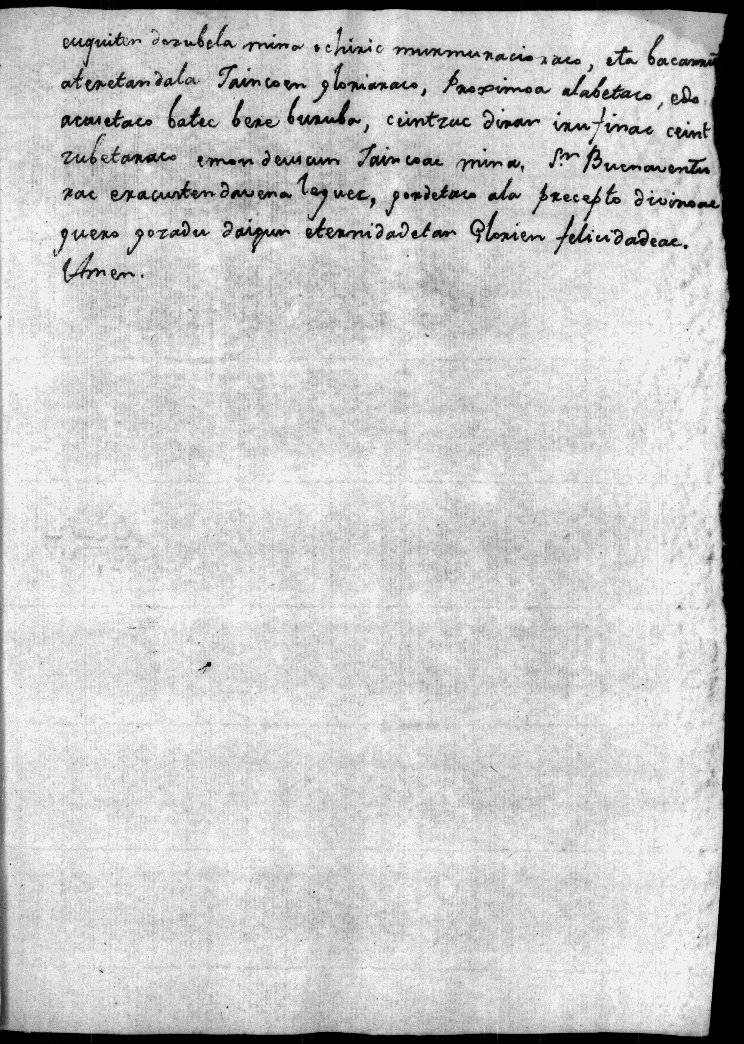 euquiten dezubela mina ichiric murmuracioraco, eta bacarric
ateretandala Jaincoen gloriaraco, Proximoa alabetaco, edo
acusetaco batec bere buruba, ceintzuc diran iru finac ceint
zubetaraco emon deuscun Jaincoac mina, Sn. Buenaventu
rac eracusten davena leguez, gordetaco ala precepto divinoac
guero gozadu daigun eternidadetan Glorien felicidadeac.
Amen.